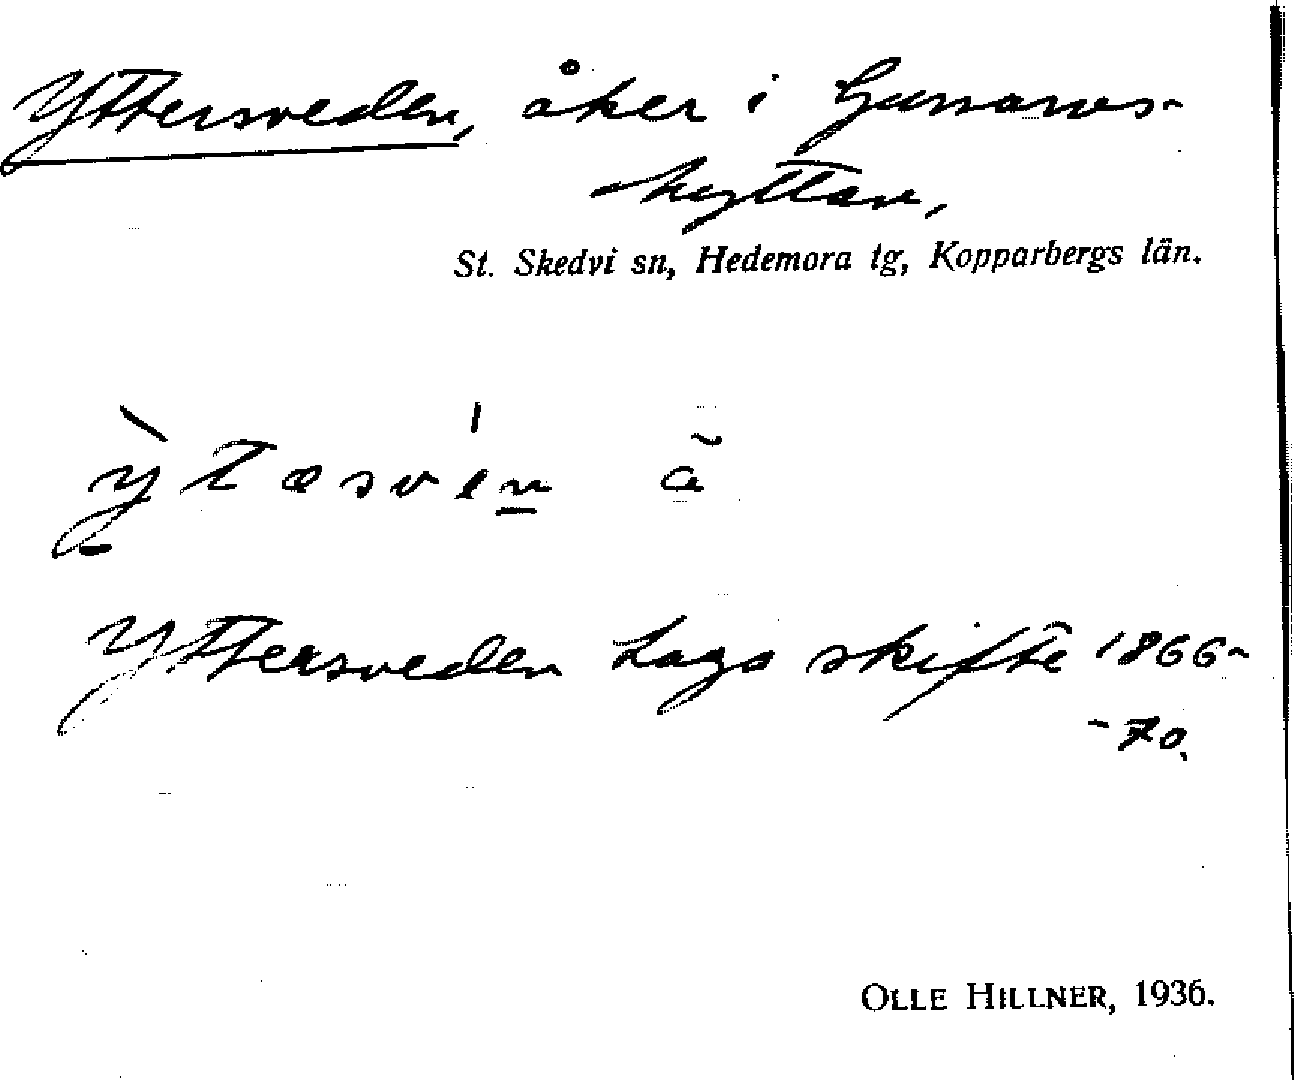 Yttersveden, åker i Gussarvs-
hyttan,
St. Skedvi sn, Hedemora tg, Kopparbergs län.
Yttersveden Laga skifte 1866-
-70.
OLLE HILLNER, 1936.